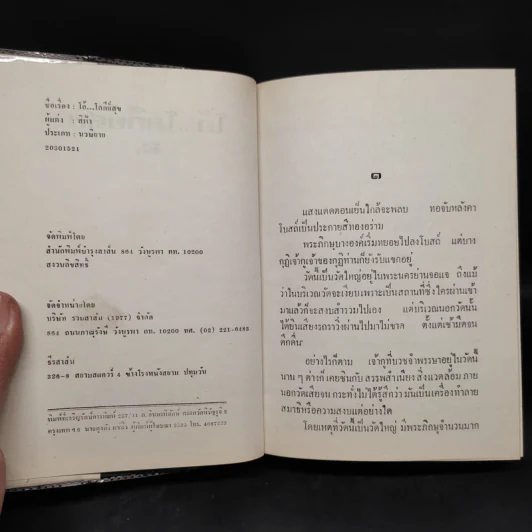 ชื่อเรื่อง : โอ้...โลกีย์สุข
ผู้แต่ง :
ประเภท : นวนิยาย
20301521
จัดพิมพ์โดย
สำนักพิมพ์บำรุงสาส์น 884 วังบูรพา กท. 10200
สงวนลิขสิทธิ์
จัดจำหน่ายโดย
บริษัท รวมสาส์น (1977) จำกัด
864 ถนนภาณุรังษี วังบูรพา กท. 10200 โทร. (02) 221-6483
ธีรสาส์น
226-8 สยามสแควร์ 4 ข้างโรงหนังสยาม ปทุมวัน
๑
แสงแดดตอนเย็นใกล้จะพลบ ทอจับหลังคา
โบสถ์เป็นประกายสีทองอร่าม
พระภิกษุบางองค์เริ่มทยอยไปลงโบสถ์ แต่บาง
กุฏิเจ้ากู่เจ้าของกุฏิท่านก็ยังรับแขกอยู่
วัดนี้เป็นวัดใหญ่อยู่ในพระนครย่านจอแจ ถึงแม้
ว่าในบริเวณวัดจะเงียบเพราะเป็นสถานที่ซึ่งใครผ่านเข้า
มาแล้วก็จะสงบสำรวมไปเอง แต่บริเวณนอกวัดนั้น
ได้ยินเสียงรถราวิ่งผ่านไปมาไม่ขาด ตั้งแต่เช้ามืดจน
ดึกดื่น
อย่างไรก็ตาม เจ้ากู่ที่บวชจำพรรษาอยู่ในวัดนี้
นาน ๆ ต่างก็ เคยชินกับ สรรพสำเนียง สิ่งแวดล้อม ภาย
นอกวัดเสียจน กระทั่งไม่ได้รู้สึกว่า มันเป็นเครื่องทำลาย
สมาธิหรือความสงบแต่อย่างใด
โดยเหตุที่วัดนี้เป็นวัดใหญ่ มีพระภิกษุจำนวนมาก